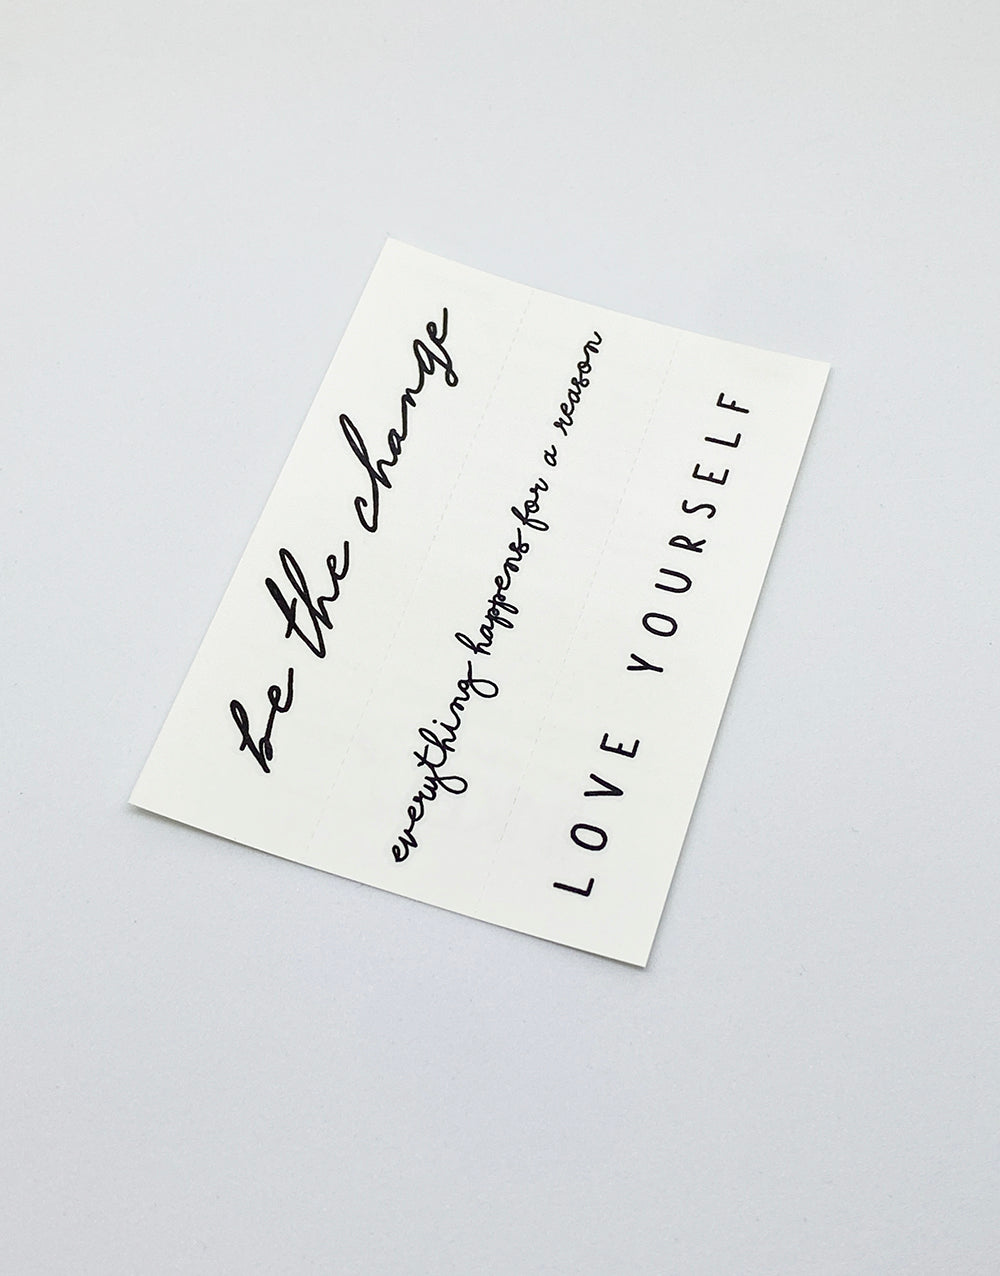 be the change
everything happens for a reason
LOVE YOURSELF